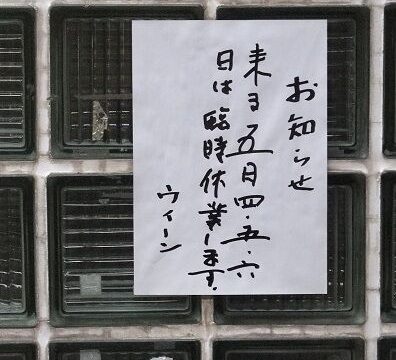 お知らせ
来る五月四・五・六
日は臨時休業します.
ウィーン